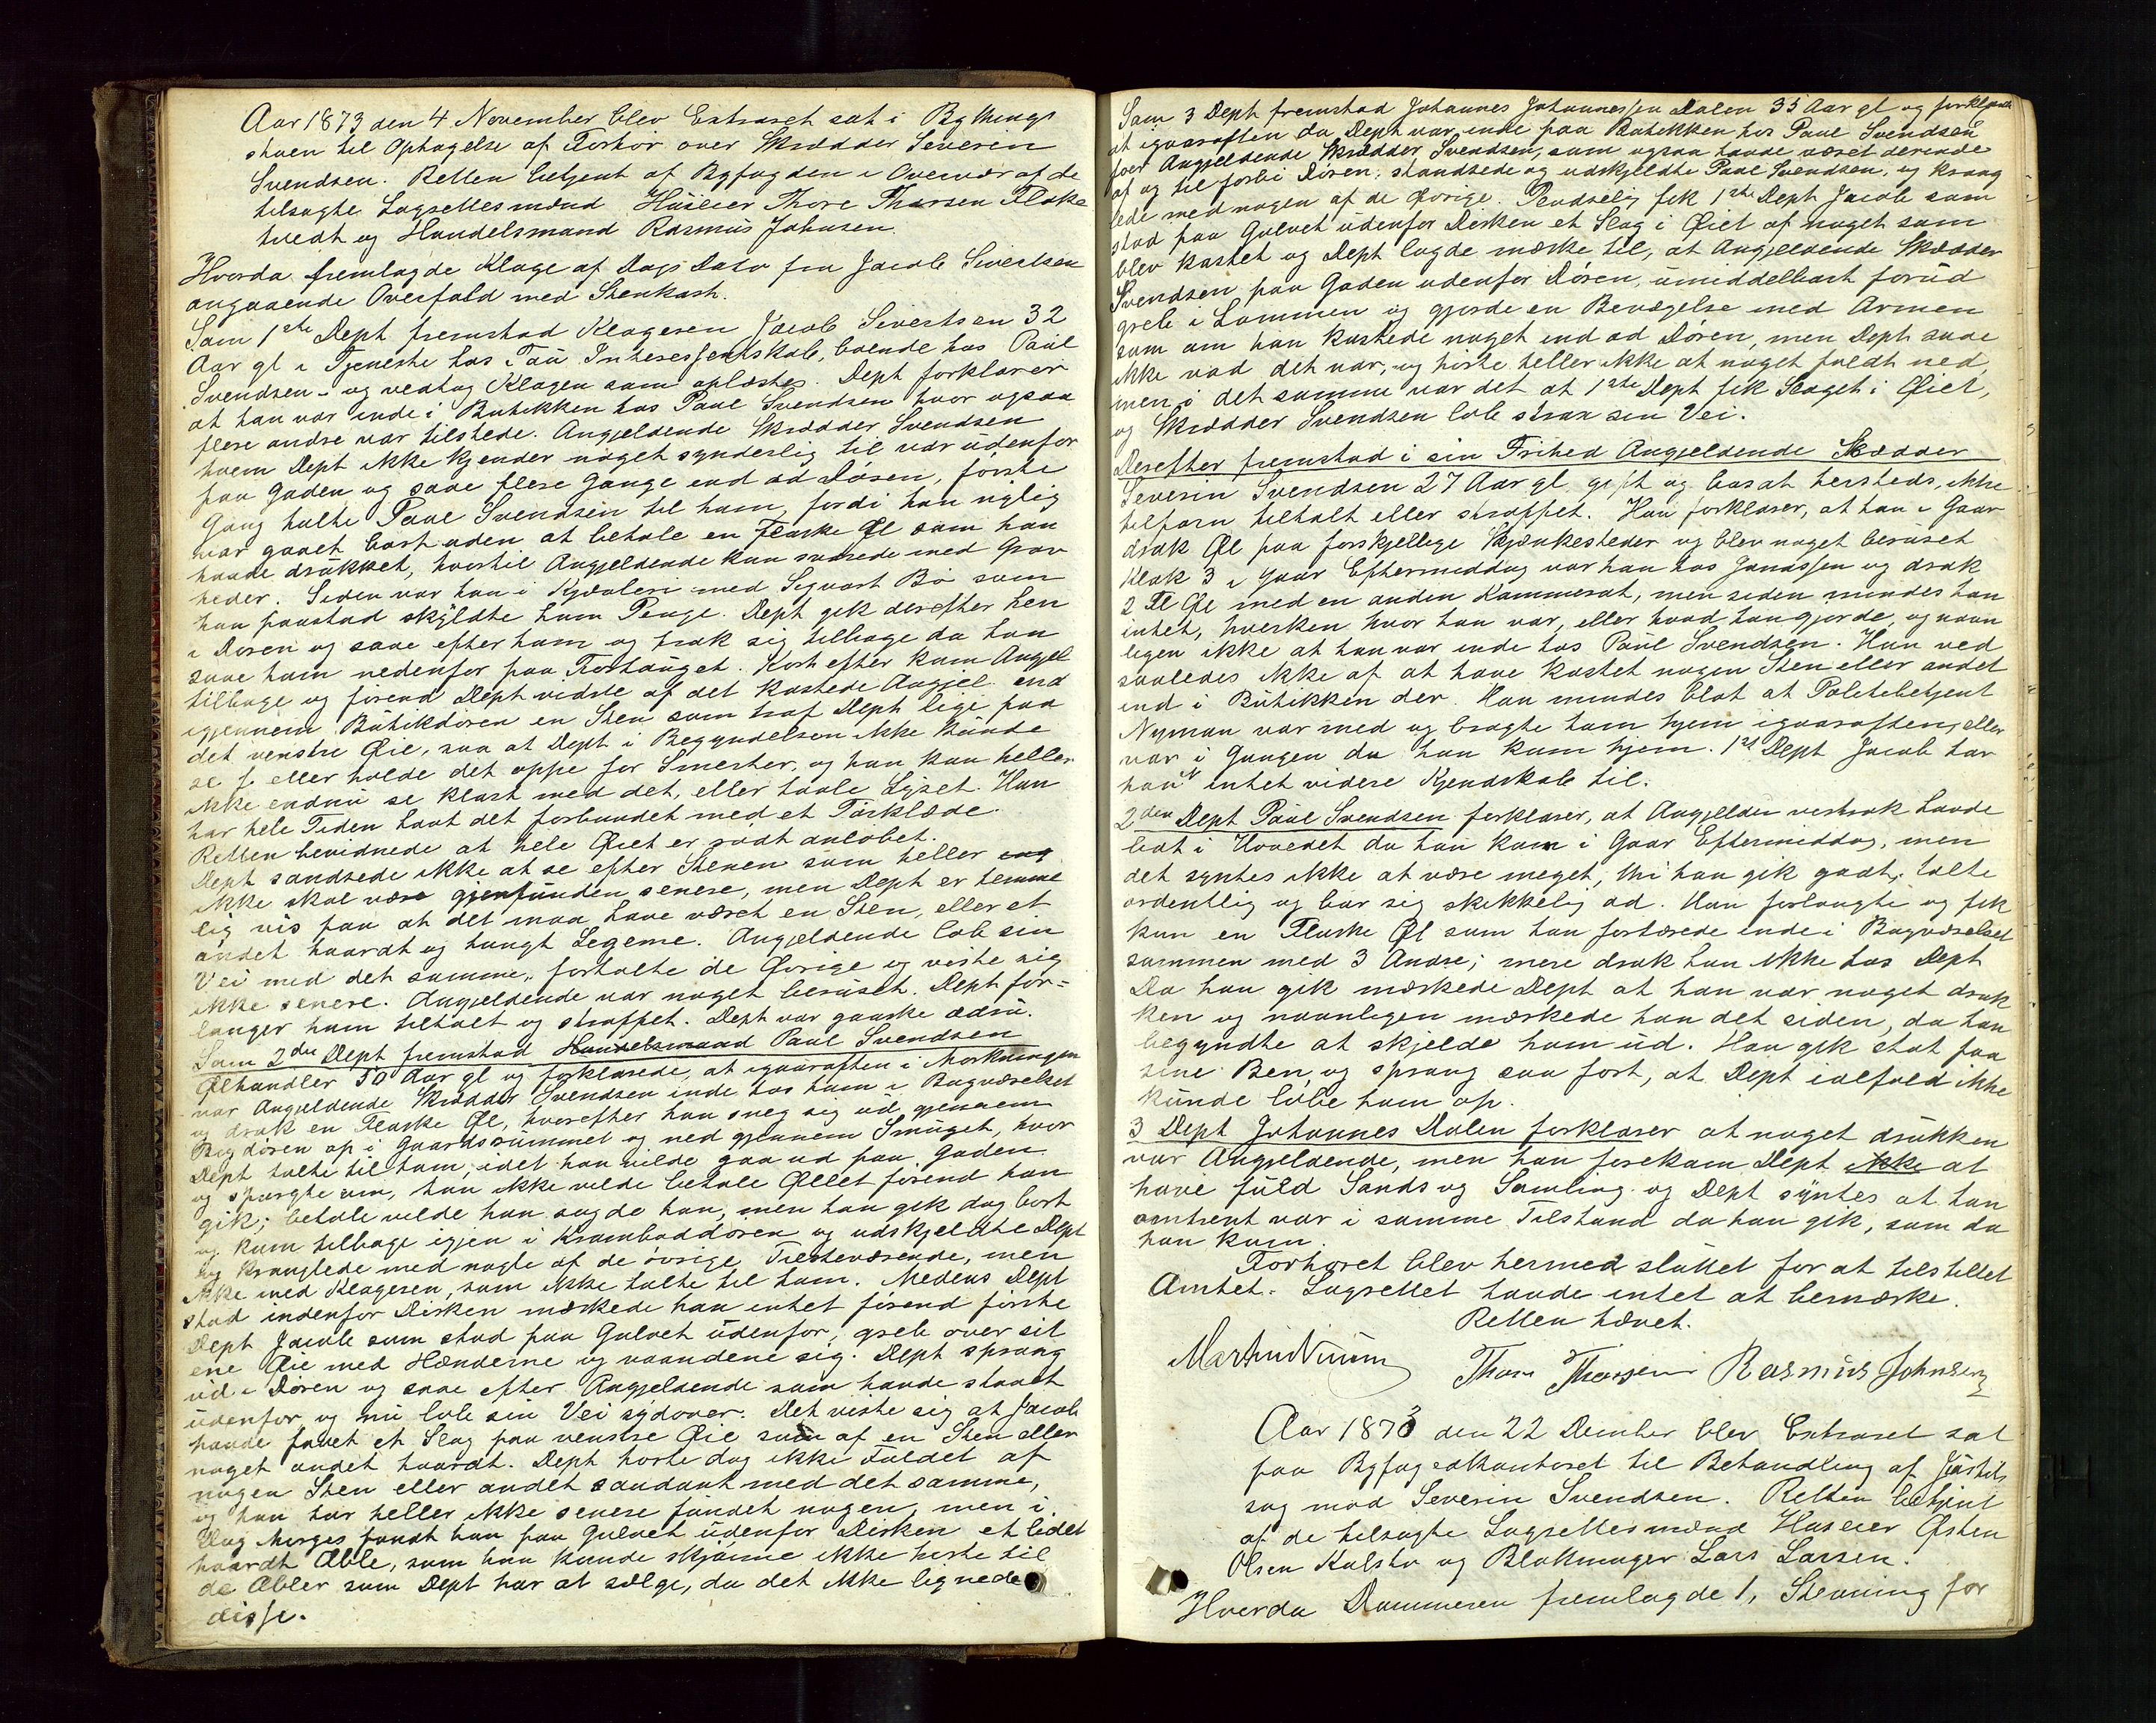 Aar 1873 den 4 November blev Extraret sat i Bythings
stuen til Optagelse af Forhør over Skrædder Severin
Svendsen. Retten betjent af Byfogden i Overvær af de
tilsagte Lagrettesmænd Huseier Thore Thorsen Floke
tvedt og Handelsmand Rasmus Johnsen.
Hvorda fremlagde Klage af Dags Dato fra Jacob Sivertsen
angaaende Overfald med Stenkast.
Som 1ste Dept fremstod Klageren Jacob Sivertsen 32
Aar gl i Tjeneste hos Tau Interessentskab, boende hos Paul
Svendsen - og vedtog Klagen som oplæstes. Dept forklarer
at han var inde i Butikken hos Paul Svendsen hvor ogsaa
flere andre var tilstede. Angjeldende Skrædder Svendsen
hvem Dept ikke kjender noget synderlig til var udenfor
paa Gaden og saae flere Gange ind ad Døren, første
Gang talte Paul Svendsen til ham, fordi han nylig
var gaaet bort uden at betale en Flaske Øl som han
havde drukket, hvortil Angjeldende kun svarede med Grov
heder. Siden var han i Kjævleri med Sigvart Bø som
han paastod skyldte ham Penge. Dept gik derefter hen
i Døren og saae efter ham og trak sig tilbage da han
saae ham nedenfor paa Fortauget. Kort efter kom Angjel
tilbage og førend Dept vidste af det kastede Angjel. ind
igjennem Butikdøren en Sten som traf Dept lige paa
det venstre Øie, saa at Dept i Begyndelsen ikke kunde
se eller holde det oppe for Smerter, og han kan heller
ikke endnu se klart med det, eller taale Lyset. Han
har hele Tiden havt det forbundet med et Tørklæde.
Retten bevidnede at hele Øiet er rødt anløbet.
Dept sandsede ikke at se efter Stenen som heller
ikke skal være gjenfunden senere, men Dept er temme
lig vis paa at det maa have været en Sten, eller et
andet haardt og tungt Legeme. Angjeldende løb sin
Vei med det samme, fortalte de Øvrige og viste sig
ikke senere. Angjeldende var noget beruset. Dept for=
langer ham tiltalt og straffet. Dept var ganske ædru.
Som 2den Dept fremstod Handelsmand Paul Svendsen
Ølhandler 50 Aar gl og forklarede, at igaaraften i Mørkningen
var Angjeldende Skrædder Svendsen inde hos ham i Bagværelset
og drak en Flaske Øl, hvorefter han sneg sig ud gjennem
Bagdøren op i Gaardsrummet og ned gjennem Smuget, hvor
Dept talte til ham, idet han vilde gaa ud paa Gaden
og spurgte om, han ikke vilde betale Øllet førend han
gik; betale vilde han sagde han, men han gik dog bort
og kom tilbage igjen i Kramboddøren og udskjeldte Dept
og kranglede med nogle af de øvrige Tilstedeværende, men
ikke med Klageren, som ikke talte til ham. Medens Dept
stod indenfor Disken mærkede han intet førend første
Dept Jacob som stod paa Gulvet udenfor, greb over sit
ene Øie med Hænderne og vaandede sig. Dept sprang
ud i Døren og saae efter Angjeldende som havde staaet
udenfor og nu løb sin Vei sydover. Det viste sig at Jacob
havde faaet et Slag paa venstre Øie som af en Sten eller
noget andet haardt. Dept hørte dog ikke Faldet af
nogen Sten eller andet saadant med det samme,
og han har heller ikke senere fundet nogen, men i
Dag Morges fandt han paa Gulvet udenfor Disken et lidet
haardt Æble, som han kunde skjønne ikke hørte til
de Æbler som Dept har at sælge, da det ikke lignede
disse.
Som 3 Dept fremstod Johannes Johannessen Dalen 35 Aar gl og forklarede
at igaaraften da Dept var inde paa Butikken hos Paul Svendsen
foer Angjeldende Skrædder Svendsen, som ogsaa havde været derinde
af og til forbi Døren, standsede og udskjeldte Paul Svendsen, og krang
lede med nogen af de Øvrige. Pludselig fik 1ste Dept Jacob som
stod paa Gulvet udenfor Disken et Slag i Øiet af noget som
blev kastet og Dept lagde mærke til, at Angjeldende Skrædder
Svendsen paa Gaden udenfor Døren, umiddelbart forud
greb i Lommen og gjorde en Bevægelse med Armen
som om han kastede noget ind ad Døren, men Dept saae
ikke vad det var, og hørte heller ikke at noget faldt ned,
men i det samme var det at 1ste Dept fik Slaget i Øiet,
og Skrædder Svendsen løb strax sin Vei.
Derefter fremstod i sin Frihed Angjeldende Skrædder
Severin Svendsen 27 Aar gl gift og bosat hersteds, ikke
tilforn tiltalt eller straffet. Han forklarer, at han i Gaar
drak Øl paa forskjellige Skjænkesteder og blev noget beruset
Klok 3 i Gaar Eftermiddag var han hos Jonassen og drak
2 Fl Øl med en anden Kammerat, men siden mindes han
intet, hverken hvor han var, eller hvad han gjorde, og navn
ligen ikke at han var inde hos Paul Svendsen. Han ved
saaledes ikke af at have kastet nogen Sten eller andet
ind i Butikken der. Han mindes blot at Politibetjent
Nyman var med og bragte ham hjem igaaraften, eller
var i Gangen da han kom hjem. 1ste Dept Jacob har
han intet videre Kjendskab til.
2den Dept Paul Svendsen forklarer, at Angjelden vistnok havde
lidt i Hovedet da han kom i Gaar Eftermiddag, men
det syntes ikke at være meget, thi han gik godt, talte
ordentlig og bar sig skikkelig ad. Han forlangte og fik
kun en Flaske Øl som han fortærede inde i Bagværelset
sammen med 3 Andre; mere drak han ikke hos Dept
Da han gik mærkede Dept at han var noget druk
ken og navnligen mærkede han det siden, da han
begyndte at skjelde ham ud. Han gik støt paa
sine Ben, og sprang saa fort, at Dept ialfald ikke
kunde løbe ham op.
3 Dept Johannes Dalen forklarer at noget drukken
var Angjeldende, men han forekom Dept ikke at
have fuld Sands og Samling og Dept syntes at han
omtrent var i samme Tilstand da han gik, som da
han kom.
Forhøret blev hermed sluttet for at tilstillet
Amtet. Lagrettet havde intet at bemærke.
Retten hævet.
Thore Thorsen Rasmus Johnsen
Aar 1873 den 22 Dember blev Extraret sat
paa Byfogedkontoret til Behandling af Justits
sag mod Severin Svendsen. Retten betjent
af de tilsagte Lagrettesmænd Huseier Østen
Olsen Kalstø og Blokmager Lars Larsen.
Hvorda Dommeren fremlagde 1, Stevning for